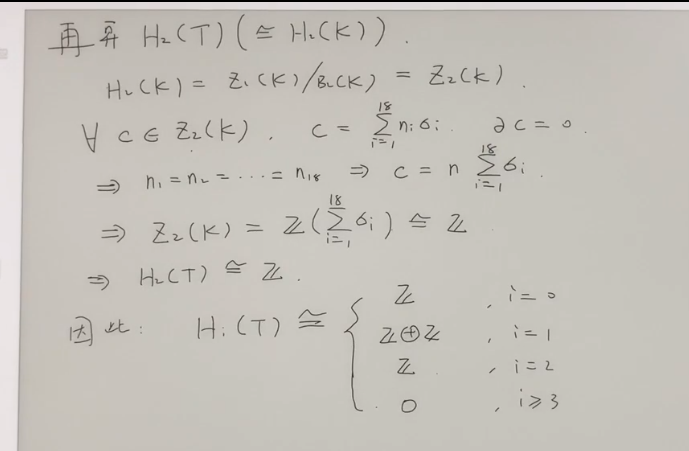 再算 H₂(T) (≅ H₂(K)).
H₂(K) = Z₂(K)/B₂(K) = Z₂(K).
∀ c ∈ Z₂(K). c = ∑_{i=1}^{18} nᵢσᵢ. ∂c = 0.
⇒ n₁ = n₂ = ⋯ = n₁₈ ⇒ c = n ∑_{i=1}^{18} σᵢ.
⇒ Z₂(K) = ℤ(∑_{i=1}^{18} σᵢ) ≅ ℤ
⇒ H₂(T) ≅ ℤ.
因此: Hᵢ(T) ≅ {
ℤ , i = 0
ℤ⊕ℤ , i = 1
ℤ , i = 2
0 , i ≥ 3